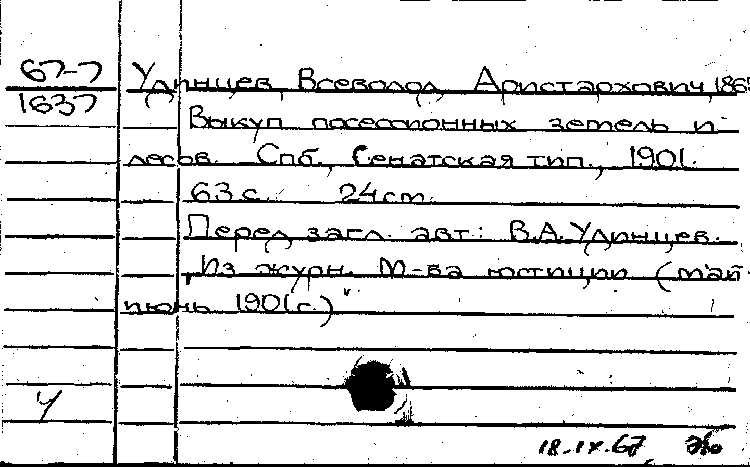 67-7
1637
Удинцев, Всеволод Аристархович, 186
Выкуп посессионных земель и
лесов. Спб., Сенатская тип., 1901.
63 с. 24 cm.
Перед загл. авт.: В.А.Удинцев.
„Из журн. М-ва юстиции (май-
июнь 1901 г.)"
У
18.IX.67